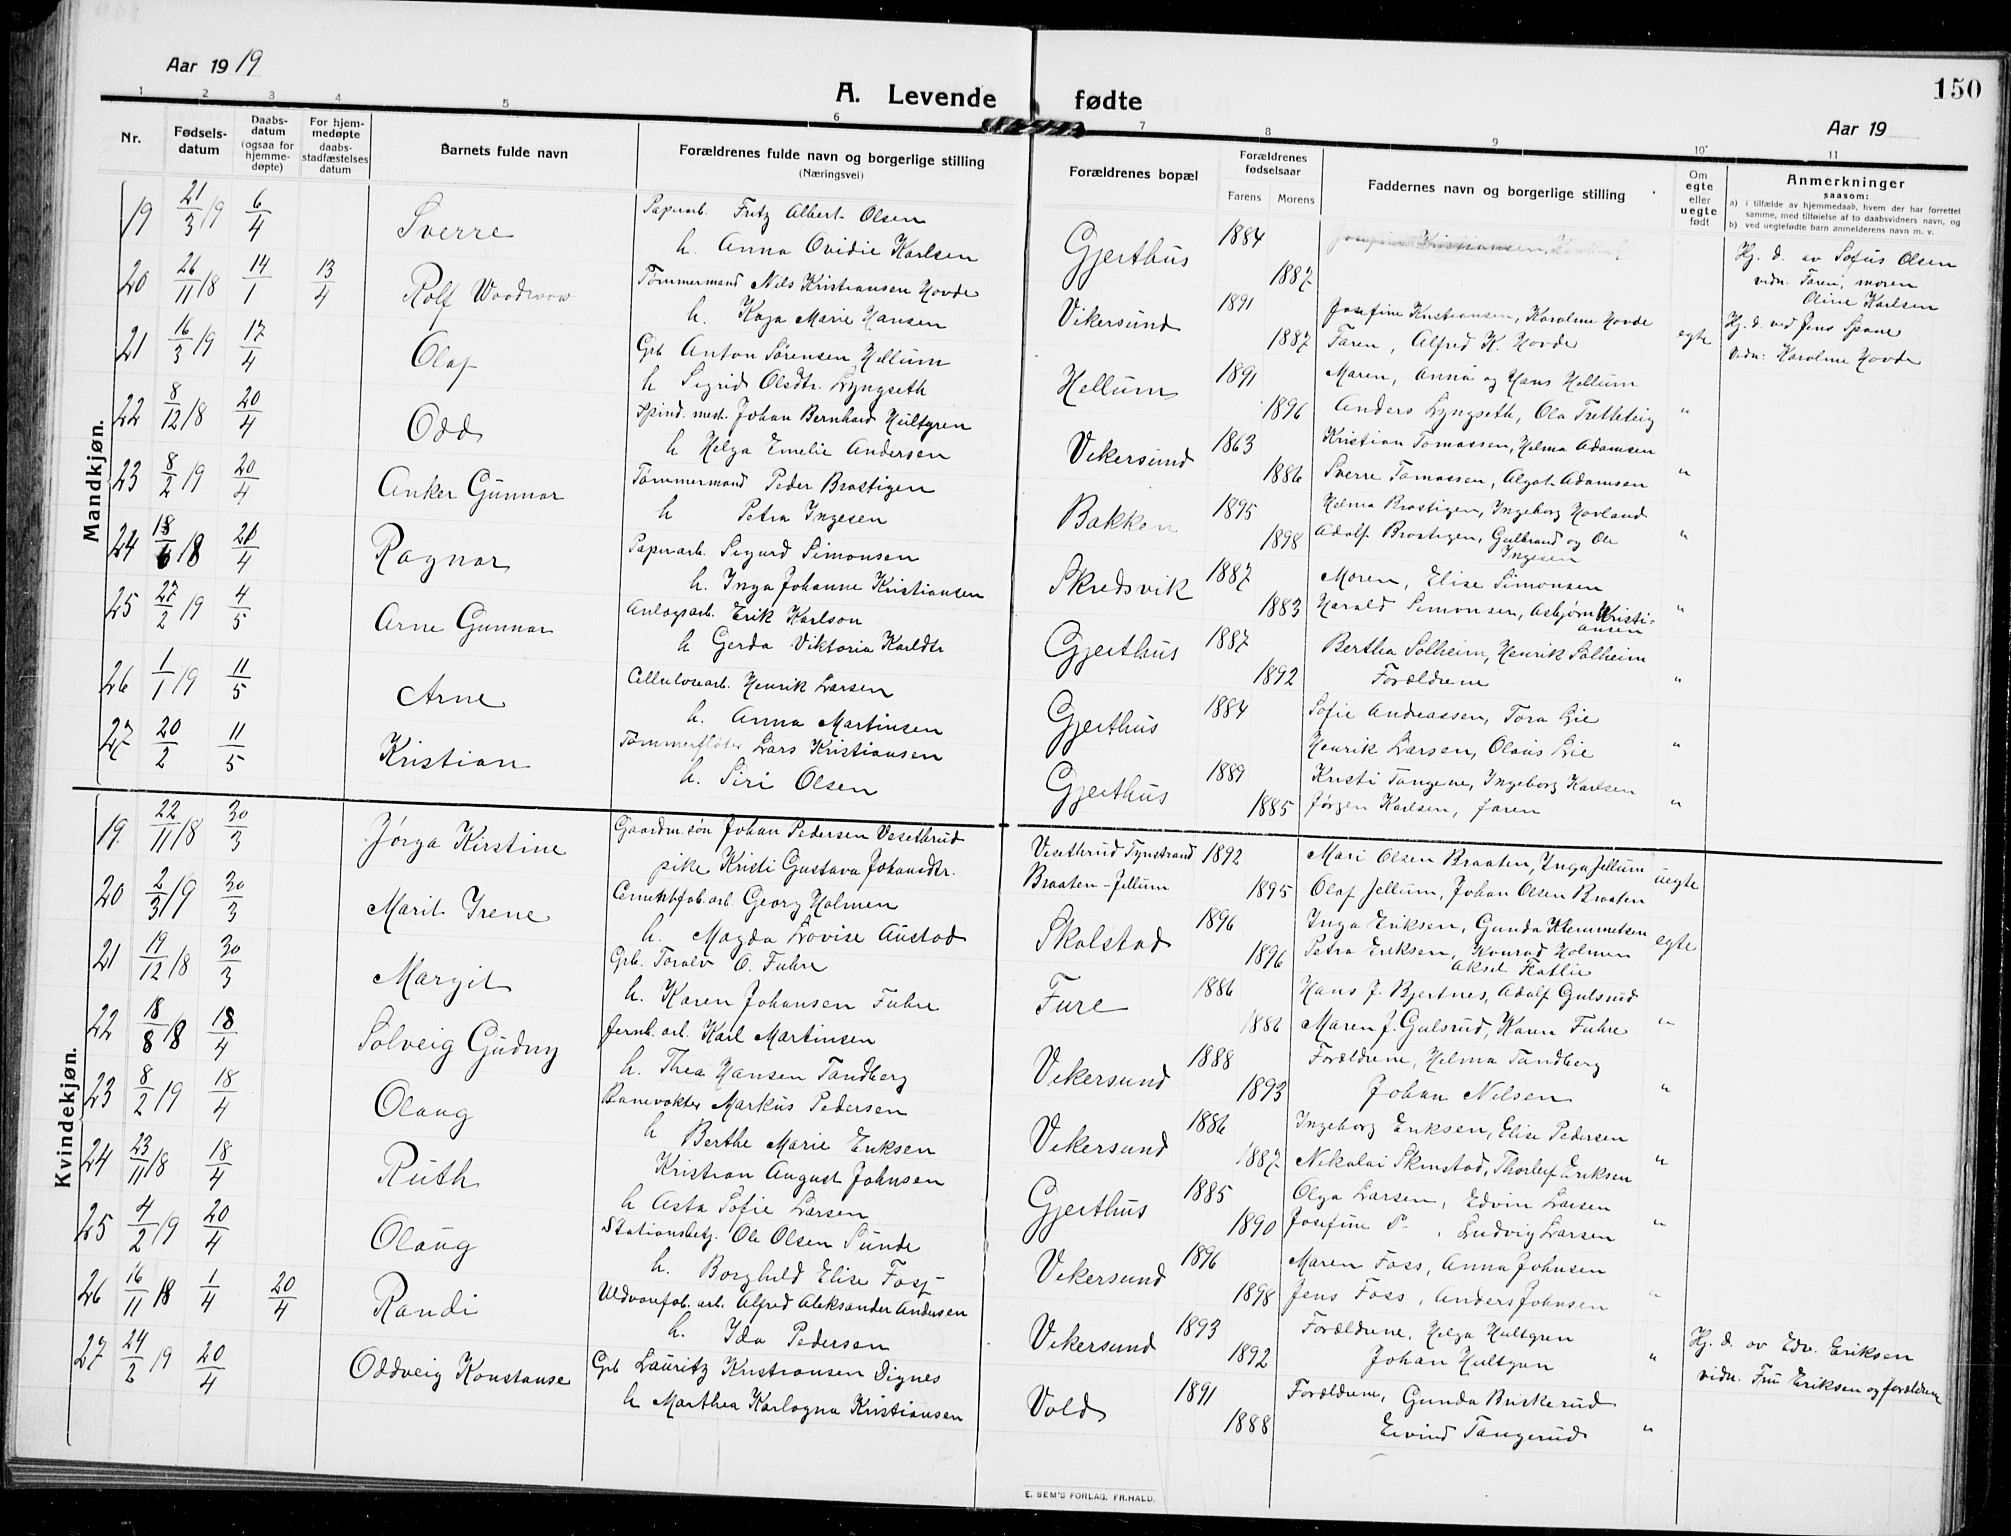 Aar 1919
A. Levende fødte
150
Aar 19
1 2 3 4 5 6 7 8 9 10 11
Nr.
Fødselsdatum
Daabsdatum (ogsaa for hjemmedøpte)
For hjemmedøpte daabsstadfæstelses datum
Barnets fulde navn
Forældrenes fulde navn og borgerlige stilling
(Næringsvei)
Forældrenes bopæl
Forældrenes fødselsaar
Farens Morens
Faddernes navn og borgerlige stilling
Om egte eller uegte født
Anmerkninger
saasom:
a) i tilfælde av hjemmedaab, hvem der har forrettet samme, med tilføielse af to daabsvidners navn, og
b) ved uegtefødte barn anmelderens navn m. v.
Mandkjøn.
19 21/3 19 6/4 Sverre Papirarb. Fritz Albert Olsen Gjerthus 1884
h. Anna Ovidie Karlsen 1887
Hj. d. av Sofus Olsen
vidn. Faren, moren
Oline Karlsen
20 26/11 18 14/1 13/4 Rolf Woodrow Tømmermand Nils Kristiansen Hovde Vikersund 1891 Josefine Kristiansen, Karoline Hovde
h. Kaja Marie Hansen 1887 Faren, Alfred K. Hovde egte
Hj. d. ved Jens Spone
Vidn: Karoline Hovde
21 16/3 19 17/4 Olaf Grb Anton Sørensen Hellum Hellum 1891 Maren, Anna og Hans Hellum
h Sigrid Olsdtr. Lyngseth 1896 Anders Lyngseth, Ola Tretteteig "
22 8/12 18 20/4 Odd Spind. mest. Johan Bernhard Hultgren Vikersund 1863 Kristian Tomassen, Helma Adamsen
h Helga Emelie Andersen 1886 Sverre Tomassen, Algot Adamsen "
23 8/2 19 20/4 Anker Gunnar Tømmermand Peder Brostigen Bakken 1895 Helma Brostigen, Ingeborg Hovland
h Petra Ingesen 1898 Adolf Brostigen, Gulbrand og Ole Ingesen "
24 18/6 18 21/4 Ragnar Papirarb. Sigurd Simonsen Skredsvik 1887 Moren, Elise Simonsen
h. Inga Johanne Kristiansen 1883 Harald Simonsen, Asbjørn Kristiansen "
25 27/2 19 4/5 Arne Gunnar Anlægsarb. Erik Karlson Gjerthus 1887 Bertha Solheim, Henrik Solheim
h Gerda Viktoria Karldtr 1892 Forældrene "
26 1/1 19 11/5 Arne Cellulosearb. Henrik Larsen Gjerthus 1884 Sofie Andreassen, Tora Lie
h. Anna Martinsen Henrik Larsen, Olaus Lie "
27 20/2 11/5 Kristian Tømmerfløter Lars Kristiansen Gjerthus 1889 Kristi Tangene, Ingeborg Karlsen
h. Siri Olsen 1885 Jørgen Karlsen, faren "
Kvindekjøn.
19. 22/11 18 30/3 Jørga Kirstine Gaardm. søn Johan Pedersen Vesethrud Vesethrud Tynstrand 1892 Mari Olsen Braaten, Inga Jellum
pike Kristi Gustava Johansdtr. Braaten - Jellum 1895 Olaf Jellum, Johan Olsen Braaten uegte
20 2/3 19 30/3 Marit Irene Cementfab. arb. Georg Holmen Skalstad 1896 Inga Eriksen, Gunda Klemmetsen
h. Magda Lovise Austad 1896 Petra Eriksen, Konrad Holmen egte
21 19/12 18 30/3 Margit Grb. Toralv O. Fuhre Fure 1886 Hans J. Bjertnes, Adolf Gulsrud
h. Karen Johansen Fuhre 1886 Maren J. Gulsrud, Karen Fuhre "
22 18/8 18 18/4 Solveig Gudny Jernb. arb. Karl Martinsen Vikersund 1888 Forældrene, Helma Tandberg
h. Thea Hansen Tandberg 1893 Johan Nilsen "
23 8/2 19 18/4 Olaug Banevokter Markus Pedersen Vikersund 1886 Ingeborg Eriksen, Elise Pedersen
h Berthe Marie Eriksen 1887 Nikolai Skinstad, Thorleif Eriksen "
24 23/11 18 18/4 Ruth Kristian August Johnsen Gjerthus 1885 Olga Larsen, Edvin Larsen
h Asta Sofie Larsen 1890 Josefine P. , Ludvig Larsen "
25 4/2 19 20/4 Olaug Stationsbetj. Ole Olsen Sunde Vikersund 1896 Maren Foss, Anna Johnsen
h. Borghild Elise Foss 1898 Jens Foss, Anders Johnsen "
26 16/11 18 1/4 20/4 Randi Uldvarefab. arb. Alfred Aleksander Andersen Vikersund 1893 Forældrene, Helga Hultgren
h. Ida Pedersen 1892 Johan Hultgren "
Hj. d. av Edv. Eriksen
vidn. Fru Eriksen og forældrene
27 24/2 19 20/4 Oddveig Konstanse Grb Lauritz Kristiansen Dignes Vold 1891 Forældrene, Gunda Buskerud
h Marthea Karlogna Kristiansen 1888 Eivind Tangerud "
E. SEM'S FORLAG, FR.HALD.